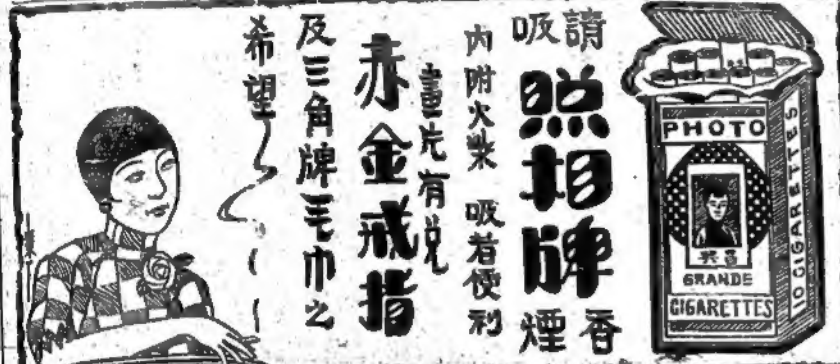 請吸
照相牌
香煙
内附火柴 吸者便利
畫片有兑
赤金戒指
及三角牌毛巾之
希望
PHOTO
GRANDE
CIGARETTES
10 CIGARETTES